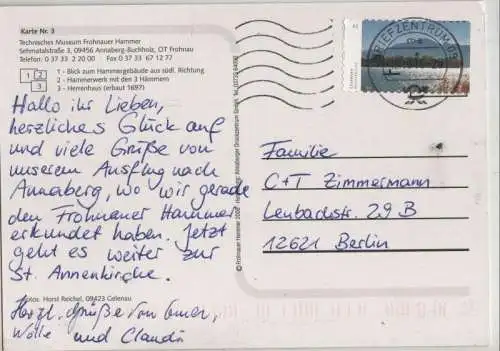 Karte Nr. 3
Technisches Museum Frohnauer Hammer
Sehmatalstraße 3, 09456 Annaberg-Buchholz, OT Frohnau
Telefon: 0 37 33 2 20 00 Fax 0 37 33 67 12 77
1 2 3
1 - Blick zum Hammergebäude aus südl. Richtung
2 - Hammerwerk mit den 3 Hämmern
3 - Herrenhaus (erbaut 1697)
Hallo ihr Lieben,
herzliches Glück auf
und viele Grüße von
unserem Ausflug nach
Annaberg, wo wir gerade
den Frohnauer Hammer
erkundet haben. Jetzt
geht es weiter zur
St. Annenkirche.
Fotos: Horst Reichel, 09423 Gelenau
Herzl. Grüße von Euer,
Wolle und Claudia
© Frohnauer Hammer Annaberger Druckzentrum GmbH
BRIEFZENTRUM 09
Familie
C+T Zimmermann
Lenbachstr. 29 B
12621 Berlin